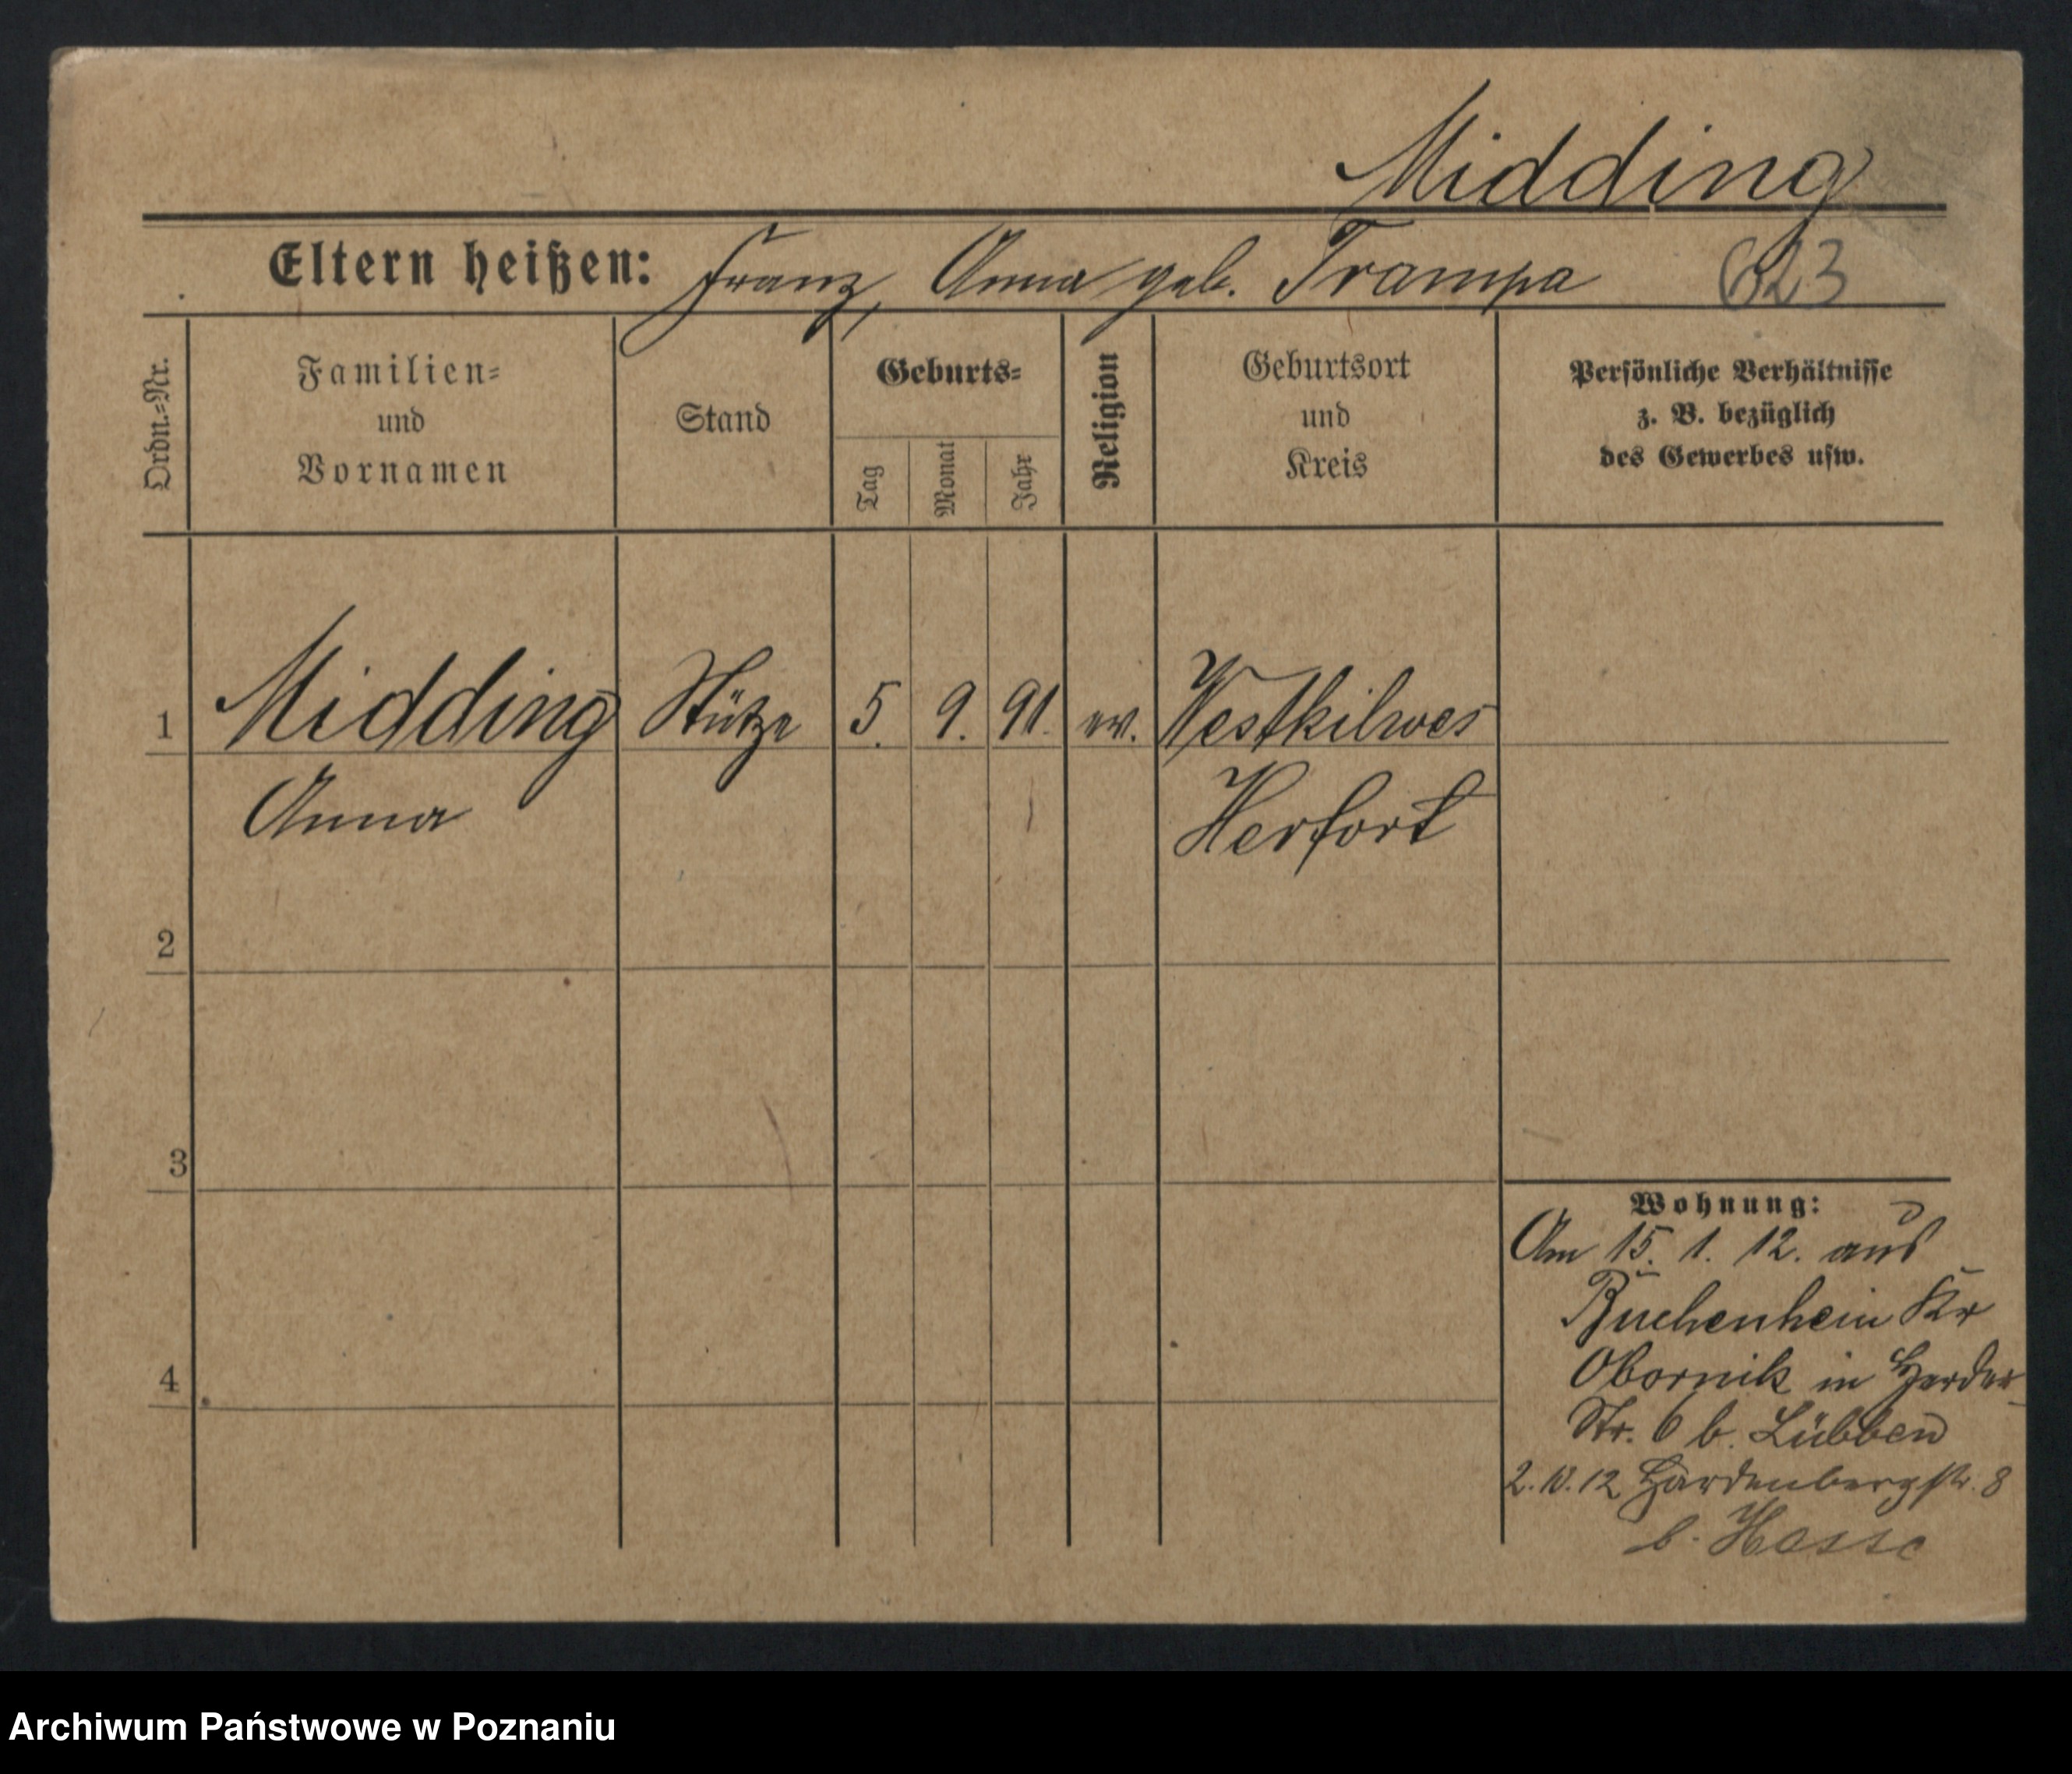 Midding
Eltern heißen: Franz, Anna geb. Trampa 623
Ordn.=Nr.
Familien=
und
Vornamen
Stand
Geburts=
Tag
Monat
Jahr
Religion
Geburtsort
und
Kreis
Persönliche Verhältnisse
z. B. bezüglich
des Gewerbes usw.
1 Midding Stütze 5. 9. 91. ev. Westkilwes
Anna Herfort
2
3
4
Wohnung:
Am 15. 1. 12. aus
Buchenhein Kr
Obornik in Herder
Str. 6 b. Lübben
2. 10. 12 Hardenbergstr. 8
b. Hasse
Archiwum Państwowe w Poznaniu